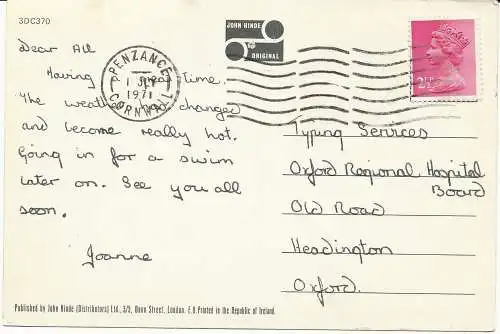 3DC370
JOHN HINDE
ORIGINAL
PENZANCE
1971
CORNWALL
2½P
Dear All
Having great time.
The weather has changed
and become really hot.
Going in for a swim
later on. See you all
soon.
Joanne
Typing Services
Oxford Regional Hospital
Board
Old Road
Headington
Oxford.
Published by John Hinde (Distributors) Ltd., 3/5, Dunn Street, London. E.8 Printed in the Republic of Ireland.